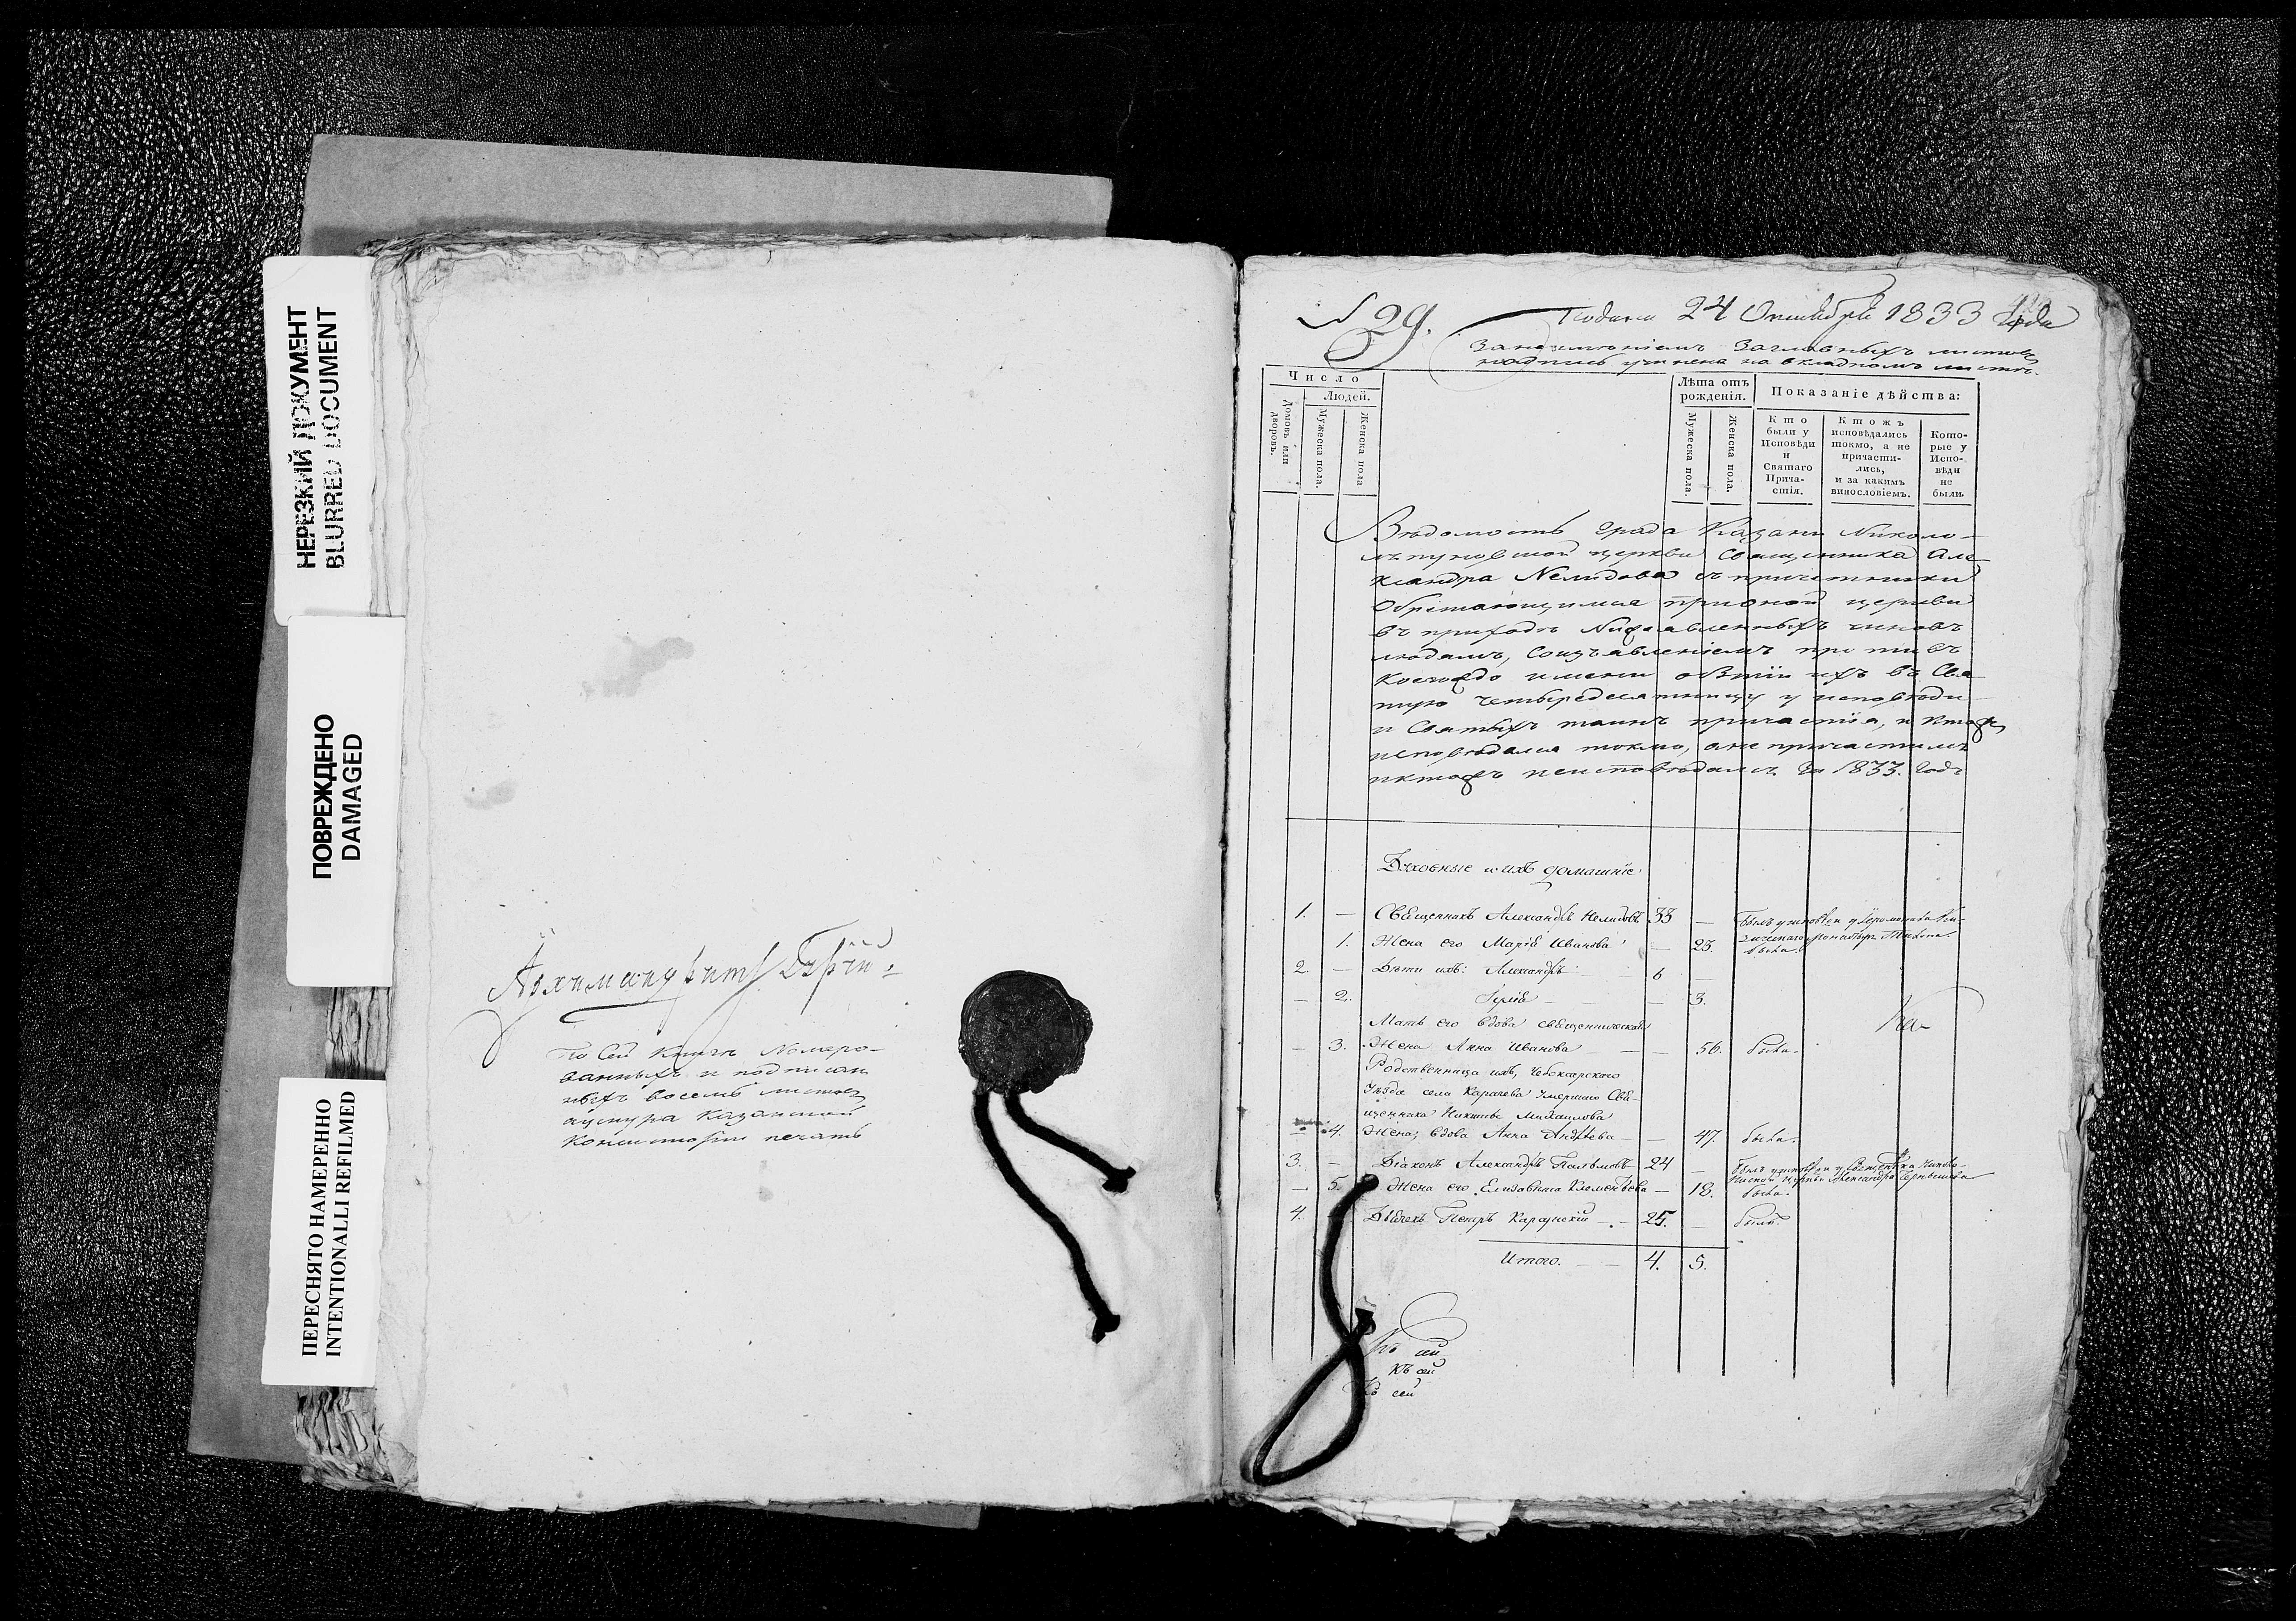 НЕРЕЗКИЙ ДОКУМЕНТ
BLURRED DOCUMENT
ПОВРЕЖДЕНО
DAMAGED
ПЕРЕСНЯТО НАМЕРЕННО
INTENTIONALLI REFILMED
Архимандритъ Гурій
По сей книгѣ номеро-
ванныхъ и подписан
ныхъ восемь листовъ
ушнура Казанской
Консисторіи печать
N 29.
Подана 24 Октября 1833 Года
За неимѣніемъ заглавныхъ листовъ
надпись учинена на вкладномъ листѣ.
Число
Людей.
Домовъ или дворовъ.
Мужеска пола.
Женска пола
Лѣта отъ рожденія.
Мужеска пола.
Женска пола.
Показаніе дѣйства:
Кто были у Исповѣди и Святаго Прича-стія.
Ктожъ исповѣдались токмо, а не причасти-лись, и за какимъ винословіемъ.
Кото-рые у Испо-вѣди не были
Вѣдомость града Казани Николо-
ляпуновской церкви священника Але-
ксандра Нелидова съ причетники
обретающимися прионой церкви
въ приходѣ Нижеявленныхъ чиновъ
людемъ, Созъявленіемъ противъ
коегождо имени о бытіи ихъ въ Свя
тую четыредесятницу у исповѣди
и Святыхъ таинъ причастія, и ктожъ
исповѣдался токмо, а не причастился
иктожъ неисповѣдался. За 1833. Годъ
Духовные и ихъ домашніе
1. — Священникъ Александръ Нелидовъ 33 — Былъ у исповѣди у Іеромонаха
1. Жена его Марія Иванова — 23. была.
2. — Дѣти ихъ: Александръ 6 —
— 2. — 3.
Мать его вдова священническая
— 3. Жена Анна Иванова — 56. была.
Родственница ихъ, Чебоксарскаго
уѣзда села Карачева умершаго Свя-
щенника Никиты Михаилова
— 4. Жена, вдова Анна Андреева — 47. была.
3. — Діаконъ Александръ Пальмовъ 24 — Былъ у исповѣди у Священника
— 5. Жена его Елизавета Клементьева — 18. была.
4. Дьячекъ Петръ 25. — былъ.
Итого. — 4. 5.
Къ сей
Къ сей
Къ сей